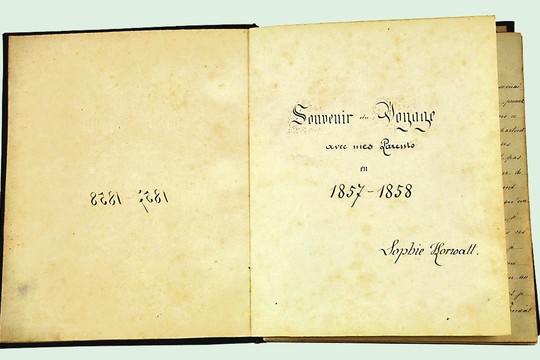 Souvenir du Voyage
avec mes Parents
en
1857-1858
Sophie Horwatt.